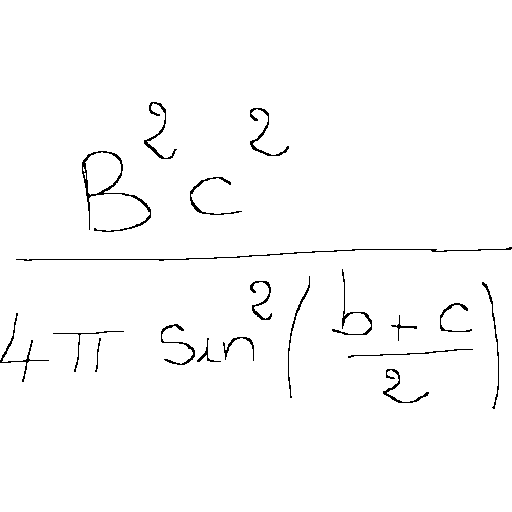 \frac{B^2 c^2}{4 \pi \sin^2 \left( \frac{b+c}{2} \right)}